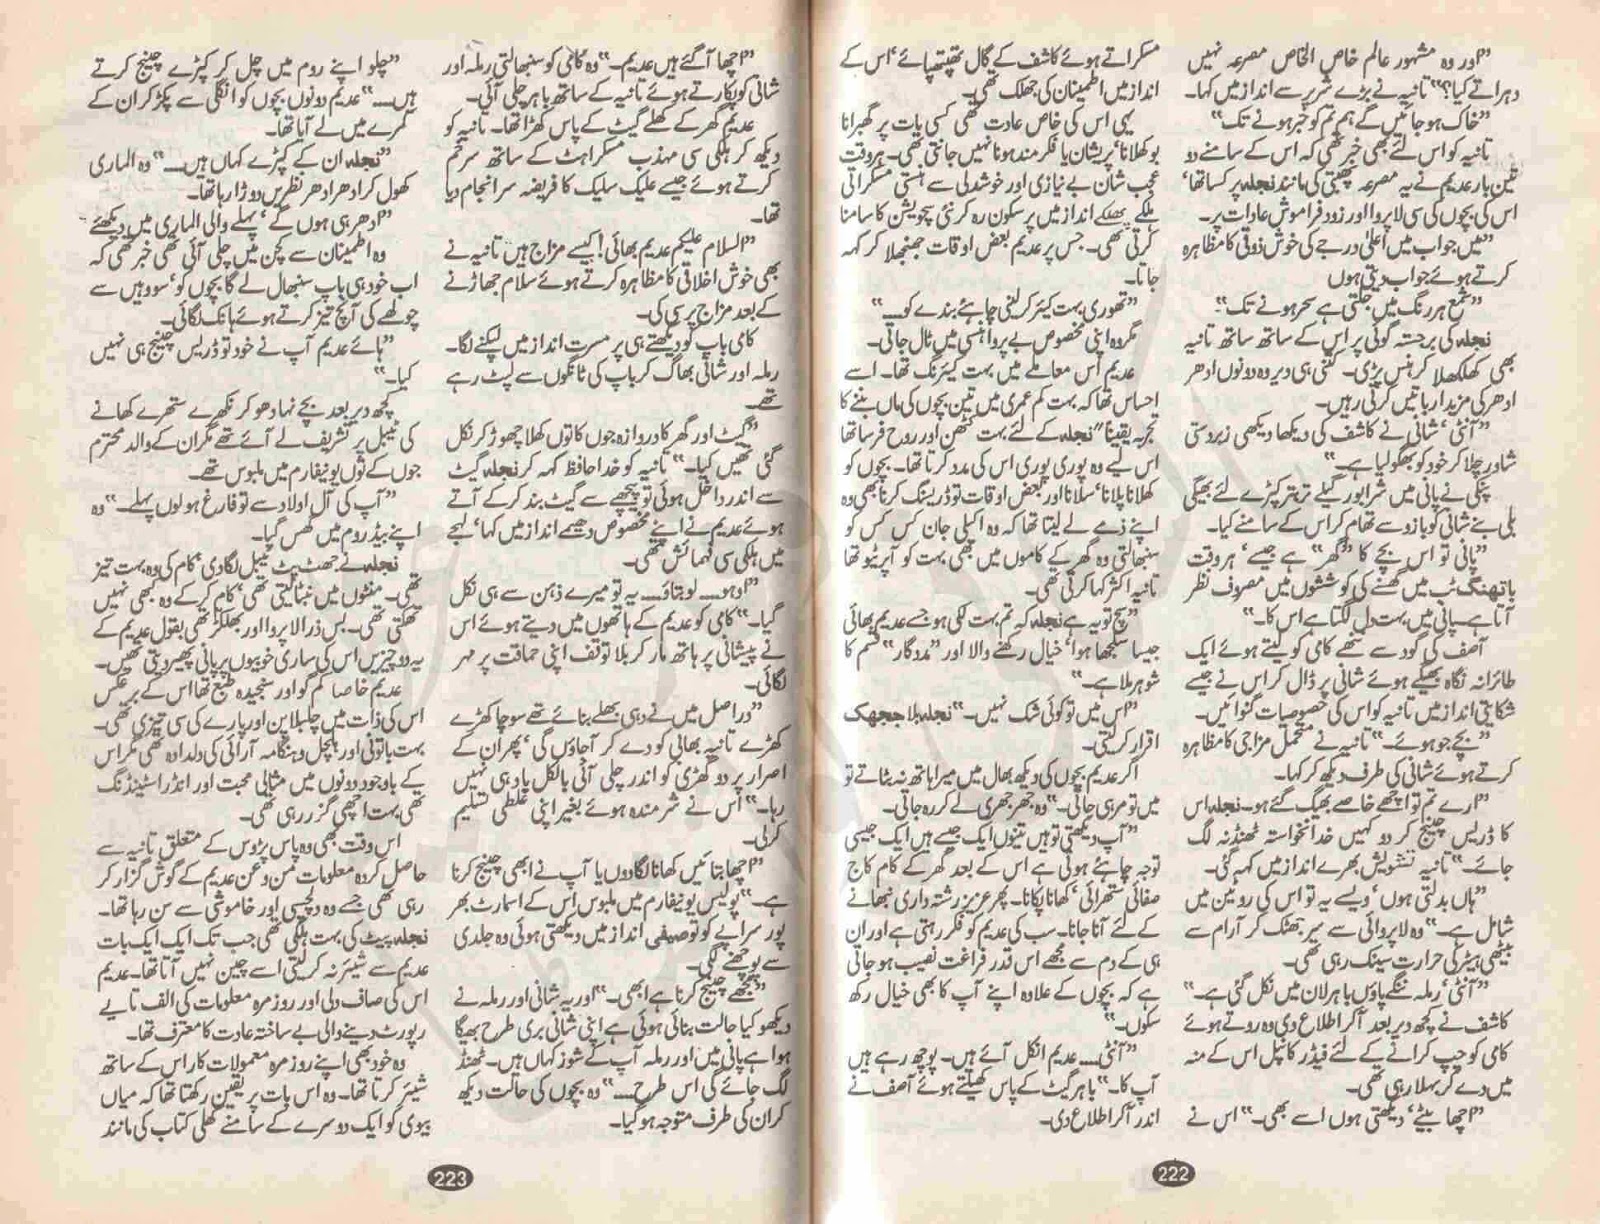 "اور وہ مشہور عالم خاص الخاص مصرعہ نہیں
دہراتے کیا؟" تانیہ نے بڑے شریر سے انداز میں کہا۔
"خاک ہو جائیں گے ہم تم کو خبر ہونے تک"
تانیہ کو اس لئے بھی خبر تھی کہ اس کے سامنے دو
تین بار عدیم نے یہ مصرعہ پھبتی کی مانند نجلہ پر کسا تھا'
اس کی بچوں کی سی لاپروا اور زود فراموش عادات پر۔
"میں جواب میں اعلیٰ درجے کی خوش ذوقی کا مظاہرہ
کرتے ہوئے جواب دیتی ہوں
"شمع ہر رنگ میں جلتی ہے سحر ہونے تک"۔
نجلہ کی برجستہ گوئی پر اس کے ساتھ ساتھ تانیہ
بھی کھلکھلا کر ہنس پڑی۔ کتنی ہی دیر وہ دونوں ادھر
ادھر کی مزیدار باتیں کرتی رہیں۔
"آنٹی' شانی نے کاشف کی دیکھا دیکھی زبردستی
شاور چلا کر خود کو بھگو لیا ہے۔"
پنکی نے پانی میں شرابور گیلے تر بتر کپڑے لئے بھیگی
بلی بنے شانی کو بازو سے تھام کر اس کے سامنے کیا۔
"پانی تو اس بچے کا "گھر" ہے جیسے' ہر وقت
باتھنگ ٹب میں گھسنے کی کوششوں میں مصروف نظر
آتا ہے۔ پانی میں بہت دل لگتا ہے اس کا۔"
آصف کی گود سے ننھے کامی کو لیتے ہوئے ایک
طائرانہ نگاہ بھیگے ہوئے شانی پر ڈال کر اس نے جیسے
شکایتی انداز میں تانیہ کو اس کی خصوصیات گنوائیں۔
"بچے جو ہوئے۔" تانیہ نے متحمل مزاجی کا مظاہرہ
کرتے ہوئے شانی کی طرف دیکھ کر کہا۔
"ارے تم تو اچھے خاصے بھیگ گئے ہو۔ نجلہ اس
کا ڈریس چینج کر دو کہیں خدانخواستہ ٹھنڈ نہ لگ
جائے۔" تانیہ تشویش بھرے انداز میں کہہ گئی۔
"ہاں بدلتی ہوں' ویسے یہ تو اس کی روٹین میں
شامل ہے۔" وہ لاپروائی سے سر جھٹک کر آرام سے
بیٹھی ہیٹر کی حرارت سینک رہی تھی۔
"آنٹی' رملہ ننگے پاؤں باہر لان میں نکل گئی ہے۔"
کاشف نے کچھ دیر بعد آ کر اطلاع دی وہ روتے ہوئے
کامی کو چپ کرانے کے لئے فیڈر کا نپل اس کے منہ
میں دے کر بہلا رہی تھی۔
"اچھا بیٹے' دیکھتی ہوں اسے بھی۔" اس نے
مسکراتے ہوئے کاشف کے گال تھپتھپائے' اس کے
انداز میں اطمینان کی جھلک تھی۔
یہی اس کی خاص عادت تھی کسی بات پر گھبرانا
بوکھلانا' پریشان یا فکر مند ہونا نہیں جانتی تھی۔ ہر وقت
عجب شان بے نیازی اور خوشدلی سے ہنستی مسکراتی
ہلکے پھلکے انداز میں پرسکون رہ کر نئی سچویشن کا سامنا
کرتی تھی۔ جس پر عدیم بعض اوقات جھنجھلا کر کہہ
جاتا۔
"تھوڑی بہت کیئر کر لینی چاہئے بندے کو۔۔۔"
مگر وہ اپنی مخصوص بے پروا ہنسی میں ٹال جاتی۔
عدیم اس معاملے میں بہت کیئرنگ تھا۔ اسے
احساس تھا کہ بہت کم عمری میں تین بچوں کی ماں بننے کا
تجربہ یقیناً" نجلہ کے لئے بہت کٹھن اور روح فرسا تھا
اس لیے وہ پوری پوری اس کی مدد کرتا تھا۔ بچوں کو
کھلانا پلانا' سلانا اور بعض اوقات تو ڈریسنگ کرنا بھی وہ
اپنے ذمے لے لیتا تھا کہ وہ اکیلی جان کس کس کو
سنبھالتی وہ گھر کے کاموں میں بھی بہت کو آپریٹو تھا
تانیہ اکثر کہا کرتی تھی۔
"سچ تو یہ ہے نجلہ کہ تم بہت لکی ہو جسے عدیم بھائی
جیسا سلجھا ہوا' خیال رکھنے والا اور "مددگار" قسم کا
شوہر ملا ہے۔"
"اس میں تو کوئی شک نہیں۔" نجلہ بلا جھجھک
اقرار کر لیتی۔
اگر عدیم بچوں کی دیکھ بھال میں میرا ہاتھ نہ بٹاتے تو
میں تو مر ہی جاتی۔" وہ جھر جھری لے کر رہ جاتی۔
"آپ دیکھتی تو ہیں تینوں ایک جیسے ہیں ایک جیسی
توجہ چاہئے ہوتی ہے اس کے بعد گھر کے کام کاج
صفائی ستھرائی' کھانا پکانا۔ پھر عزیز رشتہ داری نبھانے
کے لئے آنا جانا۔ سب کی عدیم کو فکر رہتی ہے اور ان
ہی کے دم سے مجھے اس قدر فراغت نصیب ہو جاتی
ہے کہ بچوں کے علاوہ اپنے آپ کا بھی خیال رکھ
سکوں۔"
"آنٹی۔۔۔ عدیم انکل آئے ہیں۔ پوچھ رہے ہیں
آپ کا۔" باہر گیٹ کے پاس کھیلتے ہوئے آصف نے
اندر آ کر اطلاع دی۔
222
"اچھا آ گئے ہیں عدیم۔" وہ کامی کو سنبھالتی رملہ اور
شانی کو پکارتے ہوئے تانیہ کے ساتھ باہر چلی آئی۔
عدیم گھر کے کھلے گیٹ کے پاس کھڑا تھا۔ تانیہ کو
دیکھ کر ہلکی سی مہذب مسکراہٹ کے ساتھ سر خم
کرتے ہوئے جیسے علیک سلیک کا فریضہ سر انجام دیا
تھا۔
"السلام علیکم عدیم بھائی! کیسے مزاج ہیں تانیہ نے
بھی خوش اخلاقی کا مظاہرہ کرتے ہوئے سلام جھاڑنے
کے بعد مزاج پرسی کی۔
کامی باپ کو دیکھتے ہی پر مسرت انداز میں لپکنے لگا۔
رملہ اور شانی بھاگ کر باپ کی ٹانگوں سے لپٹ رہے
تھے۔
"گیٹ اور گھر کا دروازہ جوں کا توں کھلا چھوڑ کر نکل
گئی تھیں کیا۔" تانیہ کو خدا حافظ کہہ کر نجلہ گیٹ
سے اندر داخل ہوئی تو پیچھے سے گیٹ بند کر کے آتے
ہوئے عدیم نے اپنے مخصوص دھیمے انداز میں کہا' لہجے
میں ہلکی سی فہمائش تھی۔
"اوہو۔۔۔ لو بتاؤ۔۔۔ یہ تو میرے ذہن سے ہی نکل
گیا۔" کامی کو عدیم کے ہاتھوں میں دیتے ہوئے اس
نے پیشانی پر ہاتھ مار کر بلا توقف اپنی حماقت پر مہر
لگائی۔
"دراصل میں نے دہی بھلے بنائے تھے سوچا کھڑے
کھڑے تانیہ بھابی کو دے کر آ جاؤں گی' پھر ان کے
اصرار پر دو گھڑی کو اندر چلی آئی بالکل یاد ہی نہیں
رہا۔" اس نے شرمندہ ہوئے بغیر اپنی غلطی تسلیم
کر لی۔
"اچھا بتائیں کھانا لگا دوں یا آپ نے ابھی چینج کرنا
ہے۔" پولیس یونیفارم میں ملبوس اس کے اسمارٹ بھر
پور سراپے کو توصیفی انداز میں دیکھتی ہوئی وہ جلدی
سے پوچھنے لگی۔
"مجھے چینج کرنا ہے ابھی۔" اور یہ شانی اور رملہ نے
دیکھو کیا حالت بنائی ہوئی ہے اپنی شانی بری طرح بھیگا
ہوا ہے پانی میں اور رملہ آپ کے شوز کہاں ہیں۔ ٹھنڈ
لگ جائے گی اس طرح۔۔۔" وہ بچوں کی حالت دیکھ
کر ان کی طرف متوجہ ہو گیا۔
"چلو اپنے روم میں چل کر کپڑے چینج کرتے
ہیں۔۔۔" عدیم دونوں بچوں کو انگلی سے پکڑ کر ان کے
کمرے میں لے آیا تھا۔
"نجلہ ان کے کپڑے کہاں ہیں۔۔۔" وہ الماری
کھول کر ادھر ادھر نظریں دوڑا رہا تھا۔
"ادھر ہی ہوں گے' پہلے والی الماری میں دیکھئے
وہ اطمینان سے کچن میں چلی آئی تھی خبر تھی کہ
اب خود ہی باپ سنبھال لے گا بچوں کو' سو وہیں سے
چولھے کی آنچ تیز کرتے ہوئے ہانک لگائی۔
"ہائے عدیم آپ نے خود تو ڈریس چینج ہی نہیں
کیا۔"
کچھ دیر بعد بچے نہا دھو کر نکھرے ستھرے کھانے
کی ٹیبل پر تشریف لے آئے تھے مگر ان کے والد محترم
جوں کے توں یونیفارم میں ملبوس تھے۔
"آپ کی آل اولاد سے تو فارغ ہو لوں پہلے۔" وہ
اپنے بیڈ روم میں گھس گیا۔
نجلہ نے جھٹ پٹ ٹیبل لگا دی' کام کی وہ بہت تیز
تھی۔ منٹوں میں نبٹا لیتی تھی' کام کر کے وہ کبھی نہیں
تھکتی تھی۔ بس ذرا لاپروا اور بھلکڑ تھی بقول عدیم کے
یہ دو چیزیں اس کی ساری خوبیوں پر پانی پھیر دیتی تھیں۔
عدیم خاصا کم گو اور سنجیدہ طبع تھا اس کے برعکس
اس کی ذات میں چلبلا پن اور پارے کی سی تیزی تھی۔
بہت باتونی اور ہلچل و ہنگامہ آرائی کی دلدادہ تھی مگر اس
کے باوجود دونوں میں مثالی محبت اور انڈر اسٹینڈنگ
تھی بہت اچھی گزر رہی تھی۔
اس وقت بھی وہ پاس پڑوس کے متعلق تانیہ سے
حاصل کردہ معلومات من و عن عدیم کے گوش گزار کر
رہی تھی جسے وہ دلچسپی اور خاموشی سے سن رہا تھا۔
نجلہ پیٹ کی بہت ہلکی تھی جب تک ایک ایک بات
عدیم سے شیئر نہ کر لیتی اسے چین نہیں آتا تھا۔ عدیم
اس کی صاف دلی اور روزمرہ معلومات کی الف تا یے
رپورٹ دینے والی بے ساختہ عادت کا معترف تھا۔
وہ خود بھی اپنے روزمرہ معمولات کار اس کے ساتھ
شیئر کرتا تھا۔ وہ اس بات پر یقین رکھتا تھا کہ میاں
بیوی کو ایک دوسرے کے سامنے کھلی کتاب کی مانند
223